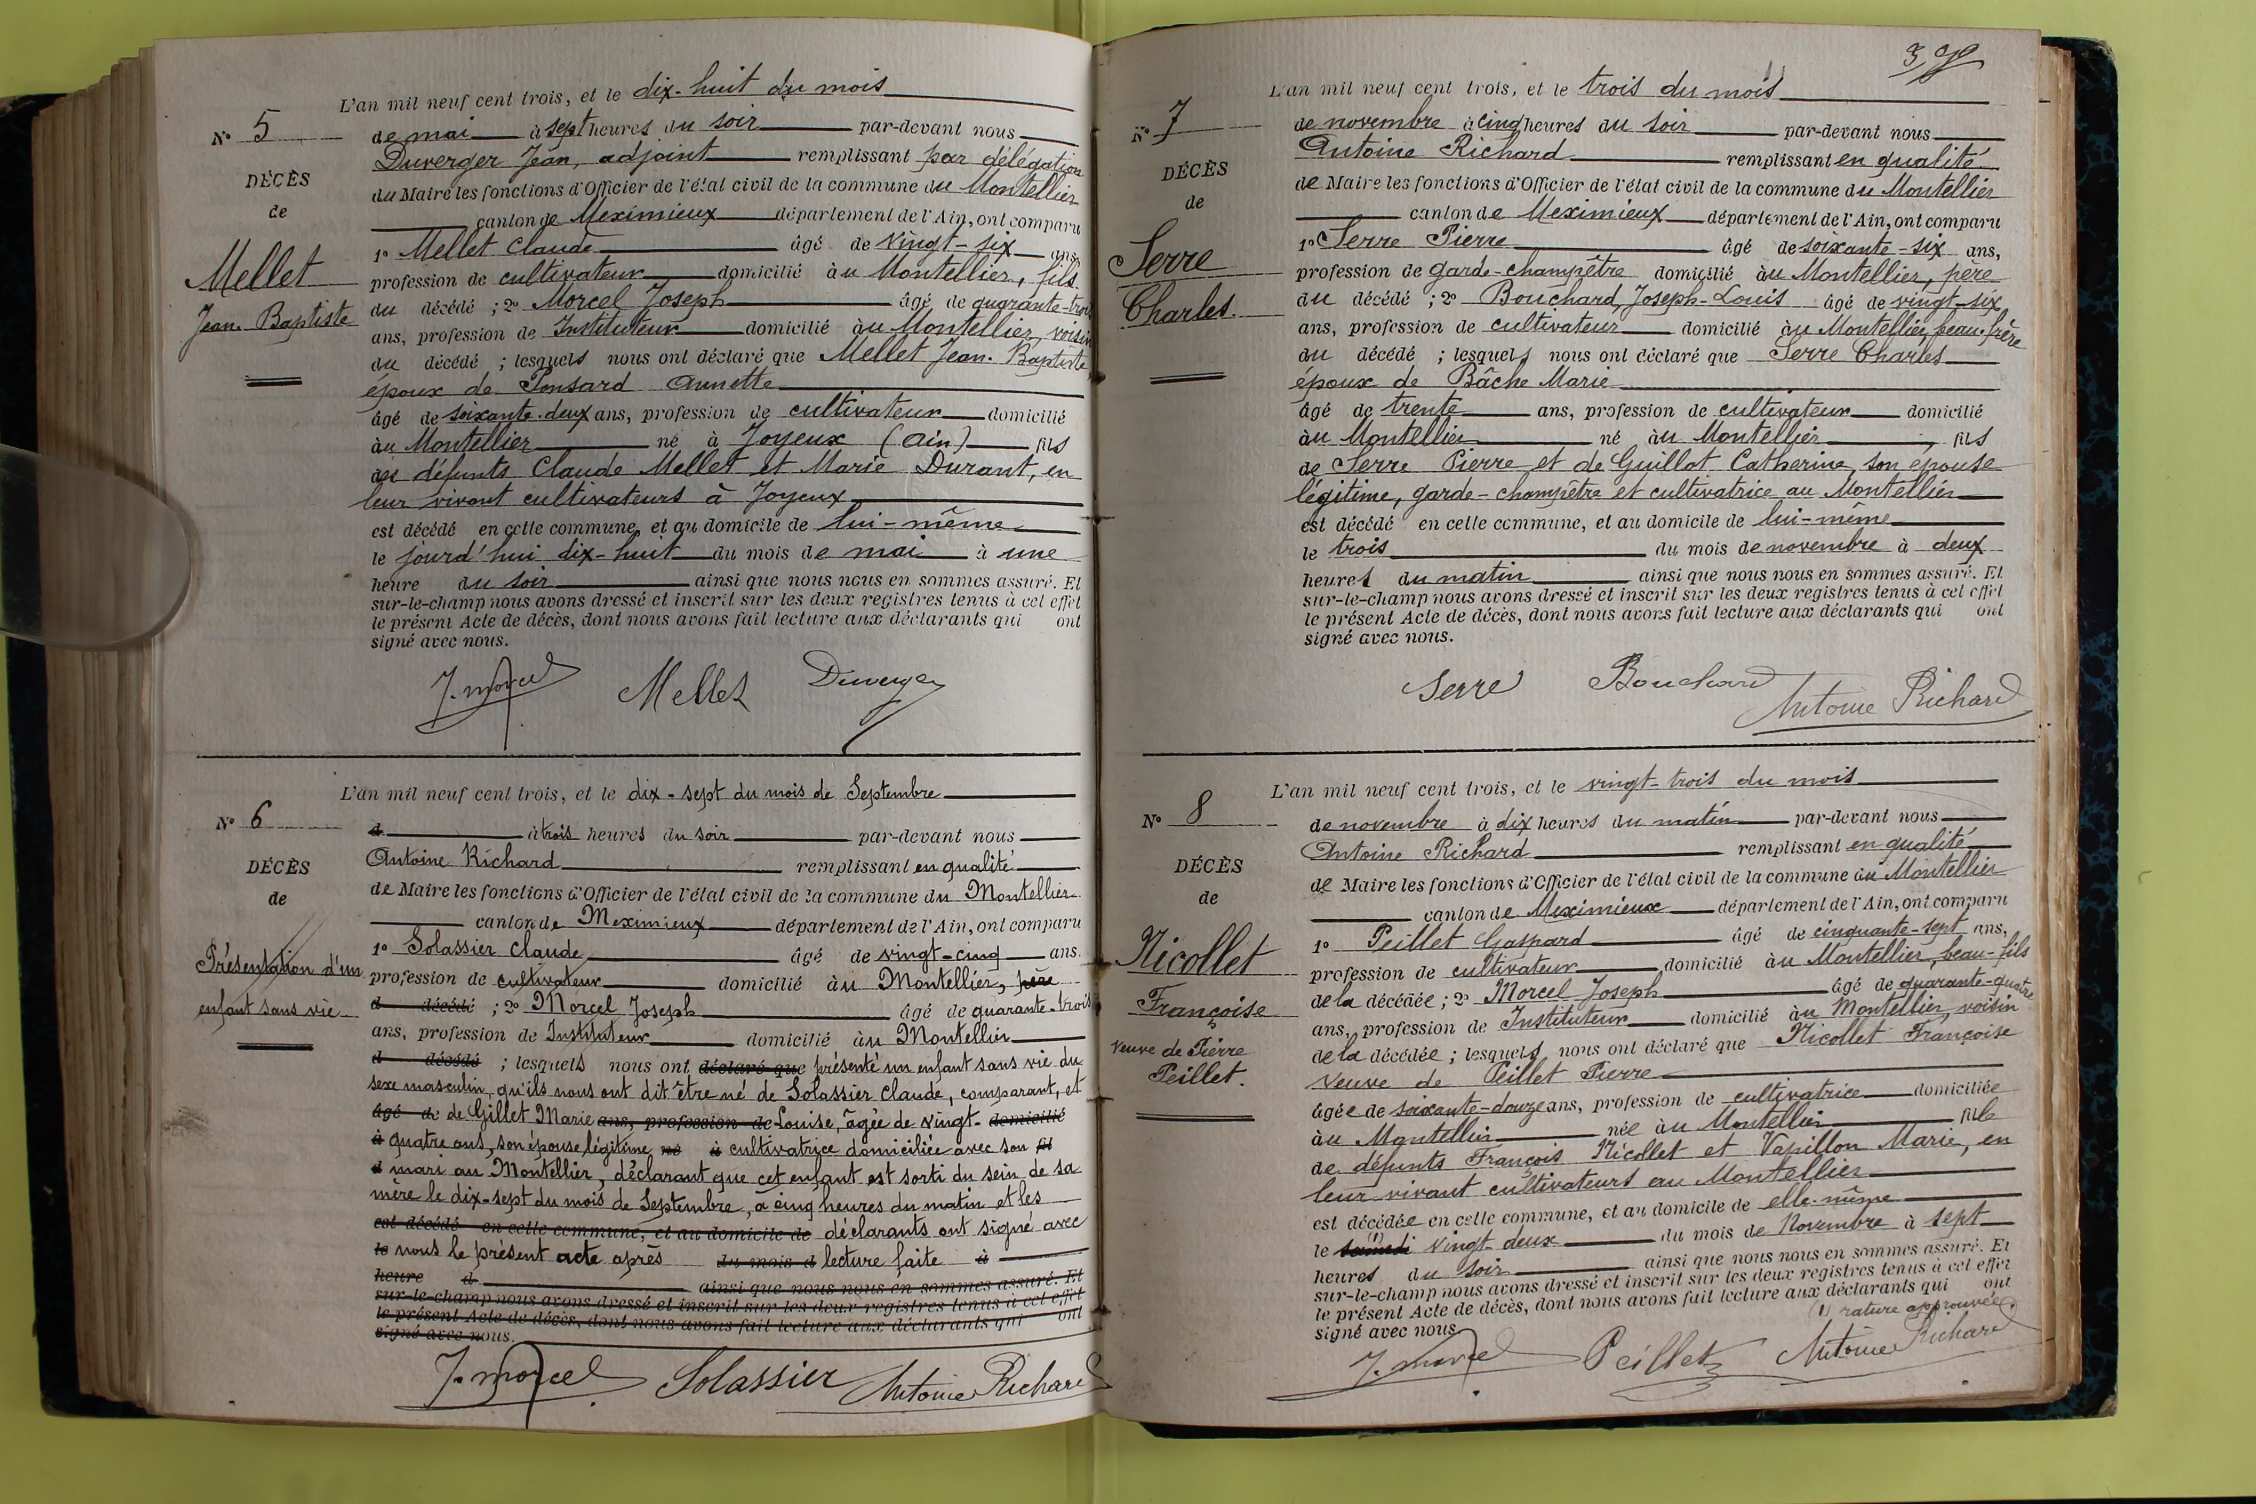 L'an mil neuf cent trois, et le dix-huit du mois
N° 5
de mai à sept heures du soir par-devant nous
Duverger Jean, adjoint remplissant par délégation
DÉCÈS
du Maire les fonctions d'Officier de l'état civil de la commune du Montellier
de
canton de Meximieux département de l'Ain, ont comparu
Mellet
Jean-Baptiste
1° Mellet Claude âgé de vingt-six ans,
profession de cultivateur domicilié au Montellier, fils
du décédé ; 2° Morcel Joseph âgé de quarante-trois
ans, profession de Instituteur domicilié au Montellier, voisin
du décédé ; lesquels nous ont déclaré que Mellet Jean-Baptiste
époux de Ponsard Annette
âgé de soixante-deux ans, profession de cultivateur domicilié
au Montellier né à Joyeux (Ain) fils
de défunts Claude Mellet et Marie Durant, en
leur vivant cultivateurs à Joyeux
est décédé en cette commune, et au domicile de lui-même
le jourd'hui dix-huit du mois de mai à une
heure du soir ainsi que nous nous en sommes assuré. Et
sur-le-champ nous avons dressé et inscrit sur les deux registres tenus à cet effet
le présent Acte de décès, dont nous avons fait lecture aux déclarants qui ont
signé avec nous.
J. Morcel Mellet Duverger
L'an mil neuf cent trois, et le dix-sept du mois de Septembre
N° 6
d à trois heures du soir par-devant nous
Antoine Richard remplissant en qualité
DÉCÈS
de Maire les fonctions d'Officier de l'état civil de la commune du Montellier
de
canton de Meximieux département de l'Ain, ont comparu
Présentation d'un
enfant sans vie
1° Solassier Claude âgé de vingt-cinq ans.
profession de cultivateur domicilié au Montellier, père
d décédé ; 2° Morcel Joseph âgé de quarante-trois
ans, profession de Instituteur domicilié au Montellier
d décédé ; lesquels nous ont déclaré que présenté un enfant sans vie du
sexe masculin, qu'ils nous ont dit être né de Solassier Claude, comparant, et
âgé de de Gillet Marie ans, profession de Louise, âgée de vingt- domicilié
à quatre ans, son épouse légitime né à cultivatrice domiciliée avec son fil
d mari au Montellier, déclarant que cet enfant est sorti du sein de sa
mère le dix-sept du mois de Septembre, à cinq heures du matin et les
est décédé en cette commune, et au domicile de déclarants ont signé avec
le nous le présent acte après du mois d lecture faite à
heure d ainsi que nous nous en sommes assuré. Et
sur-le-champ nous avons dressé et inscrit sur les deux registres tenus à cet effet
le présent Acte de décès, dont nous avons fait lecture aux déclarants qui ont
signé avec nous.
J. Morcel Solassier Antoine Richard
L'an mil neuf cent trois, et le trois du mois
N° 7
de novembre à cinq heures du soir par-devant nous
Antoine Richard remplissant en qualité
DÉCÈS
de Maire les fonctions d'Officier de l'état civil de la commune du Montellier
de
canton de Meximieux département de l'Ain, ont comparu
Serre
Charles.
1° Serre Pierre âgé de soixante-six ans,
profession de garde-champêtre domicilié au Montellier, père
du décédé ; 2° Bouchard, Joseph-Louis âgé de vingt-six
ans, profession de cultivateur domicilié au Montellier, beau-frère
du décédé ; lesquels nous ont déclaré que Serre Charles
époux de Bâche Marie
âgé de trente ans, profession de cultivateur domicilié
au Montellier né au Montellier, fils
de Serre Pierre et de Guillot Catherine, son épouse
légitime, garde-champêtre et cultivatrice au Montellier
est décédé en cette commune, et au domicile de lui-même
le trois du mois de novembre à deux
heures du matin ainsi que nous nous en sommes assuré. Et
sur-le-champ nous avons dressé et inscrit sur les deux registres tenus à cet effet
le présent Acte de décès, dont nous avons fait lecture aux déclarants qui ont
signé avec nous.
Serre Bouchard Antoine Richard
L'an mil neuf cent trois, et le vingt-trois du mois
N° 8
de novembre à dix heures du matin par-devant nous
Antoine Richard remplissant en qualité
DÉCÈS
de Maire les fonctions d'Officier de l'état civil de la commune du Montellier
de
canton de Meximieux département de l'Ain, ont comparu
Nicollet
Françoise
veuve de Pierre
Peillet.
1° Peillet Gaspard âgé de cinquante-sept ans,
profession de cultivateur domicilié au Montellier, beau-fils
de la décédée ; 2° Morcel Joseph âgé de quarante-quatre
ans, profession de Instituteur domicilié au Montellier, voisin
de la décédée ; lesquels nous ont déclaré que Nicollet Françoise
veuve de Peillet Pierre
âgée de soixante-douze ans, profession de cultivatrice domiciliée
au Montellier née au Montellier fille
de défunts François Nicollet et Vapillon Marie, en
leur vivant cultivateurs au Montellier
est décédée en cette commune, et au domicile de elle-même
le samedi (1) vingt-deux du mois de Novembre à sept
heures du soir ainsi que nous nous en sommes assuré. Et
sur-le-champ nous avons dressé et inscrit sur les deux registres tenus à cet effet
le présent Acte de décès, dont nous avons fait lecture aux déclarants qui ont
signé avec nous (1) rature approuvée.
J. Morcel Peillet Antoine Richard